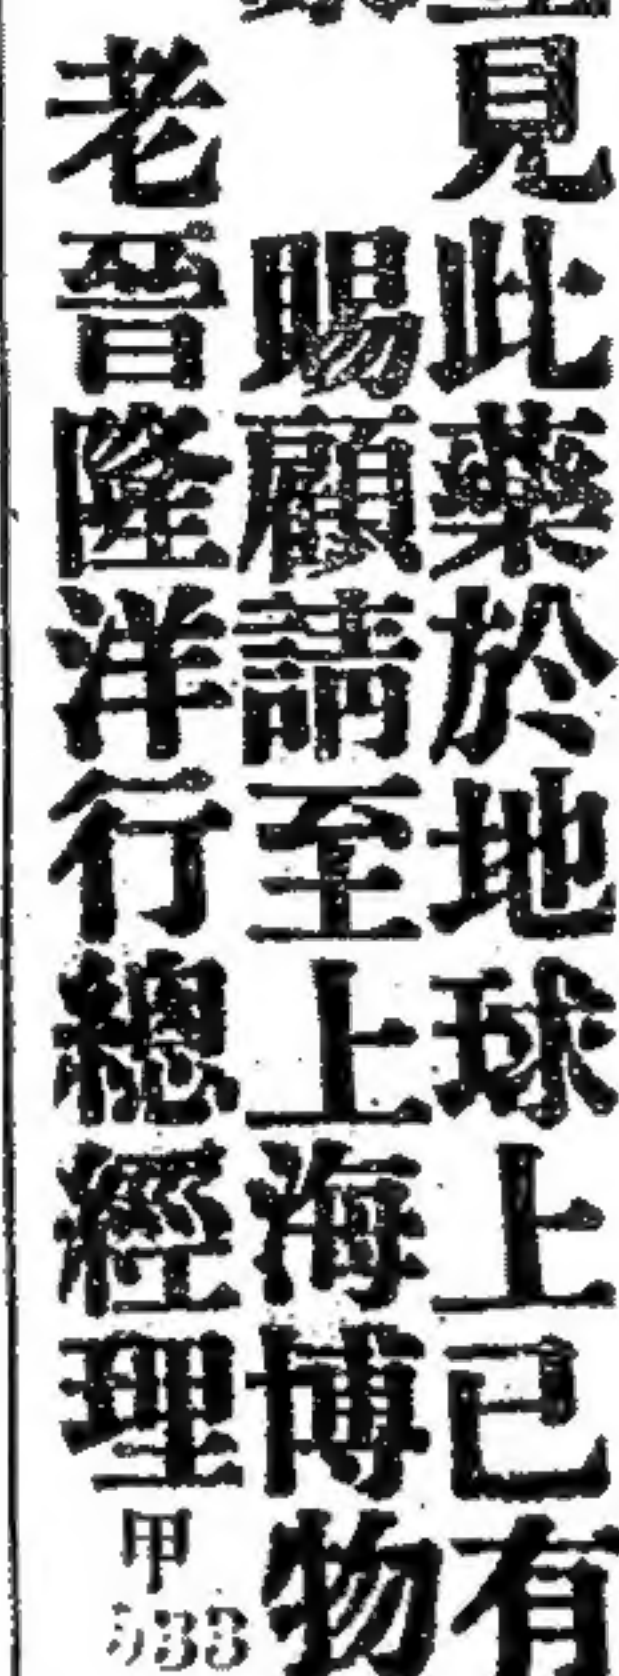 見此藥於地球上已有
賜顧請至上海博物
老晉隆洋行總經理
甲